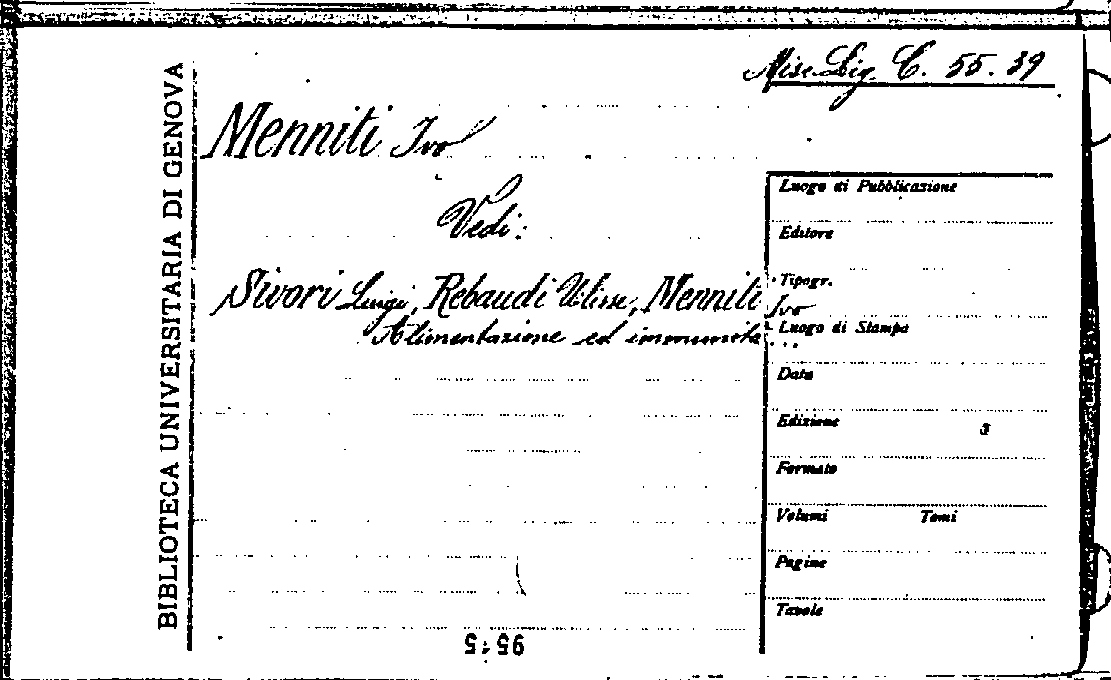 BIBLIOTECA UNIVERSITARIA DI GENOVA
Misc. Lig. C. 55. 39
Menniti Ivo
Vedi:
Sivori Luigi, Rebaudi Ulisse, Menniti Ivo
Alimentazione ed immunità...
Luogo di Pubblicazione
Editore
Tipogr.
Luogo di Stampa
Data
Edizione
Formato
Volumi Tomi
Pagine
Tavole